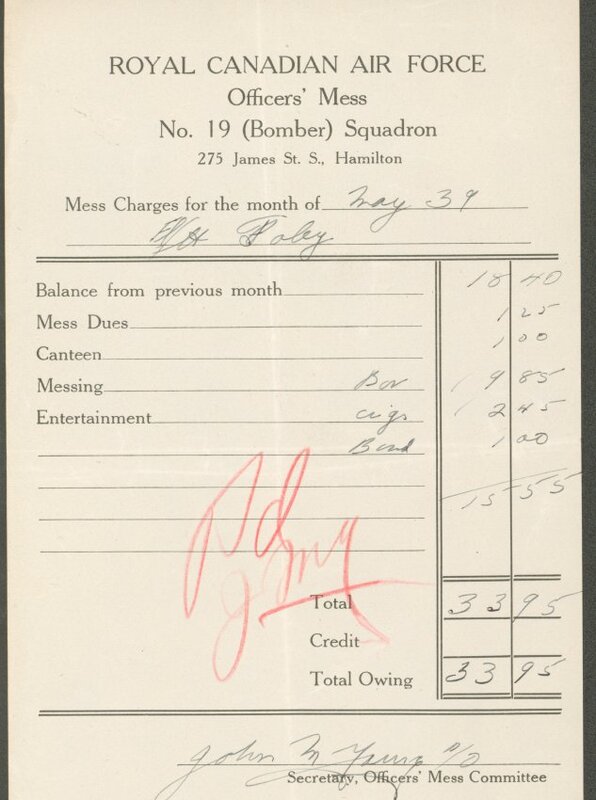 ROYAL CANADIAN AIR FORCE
Officers' Mess
No. 19 (Bomber) Squadron
275 James St. S., Hamilton
Mess Charges for the month of May 39
Foley
Balance from previous month 18 40
Mess Dues 1 25
Canteen 1 00
Messing Bar 9 85
Entertainment cigs 2 45
Band 1 00
15 55
Pd
Total 33 95
Credit
Total Owing 33 95
John M Young F/O
Secretary, Officers' Mess Committee